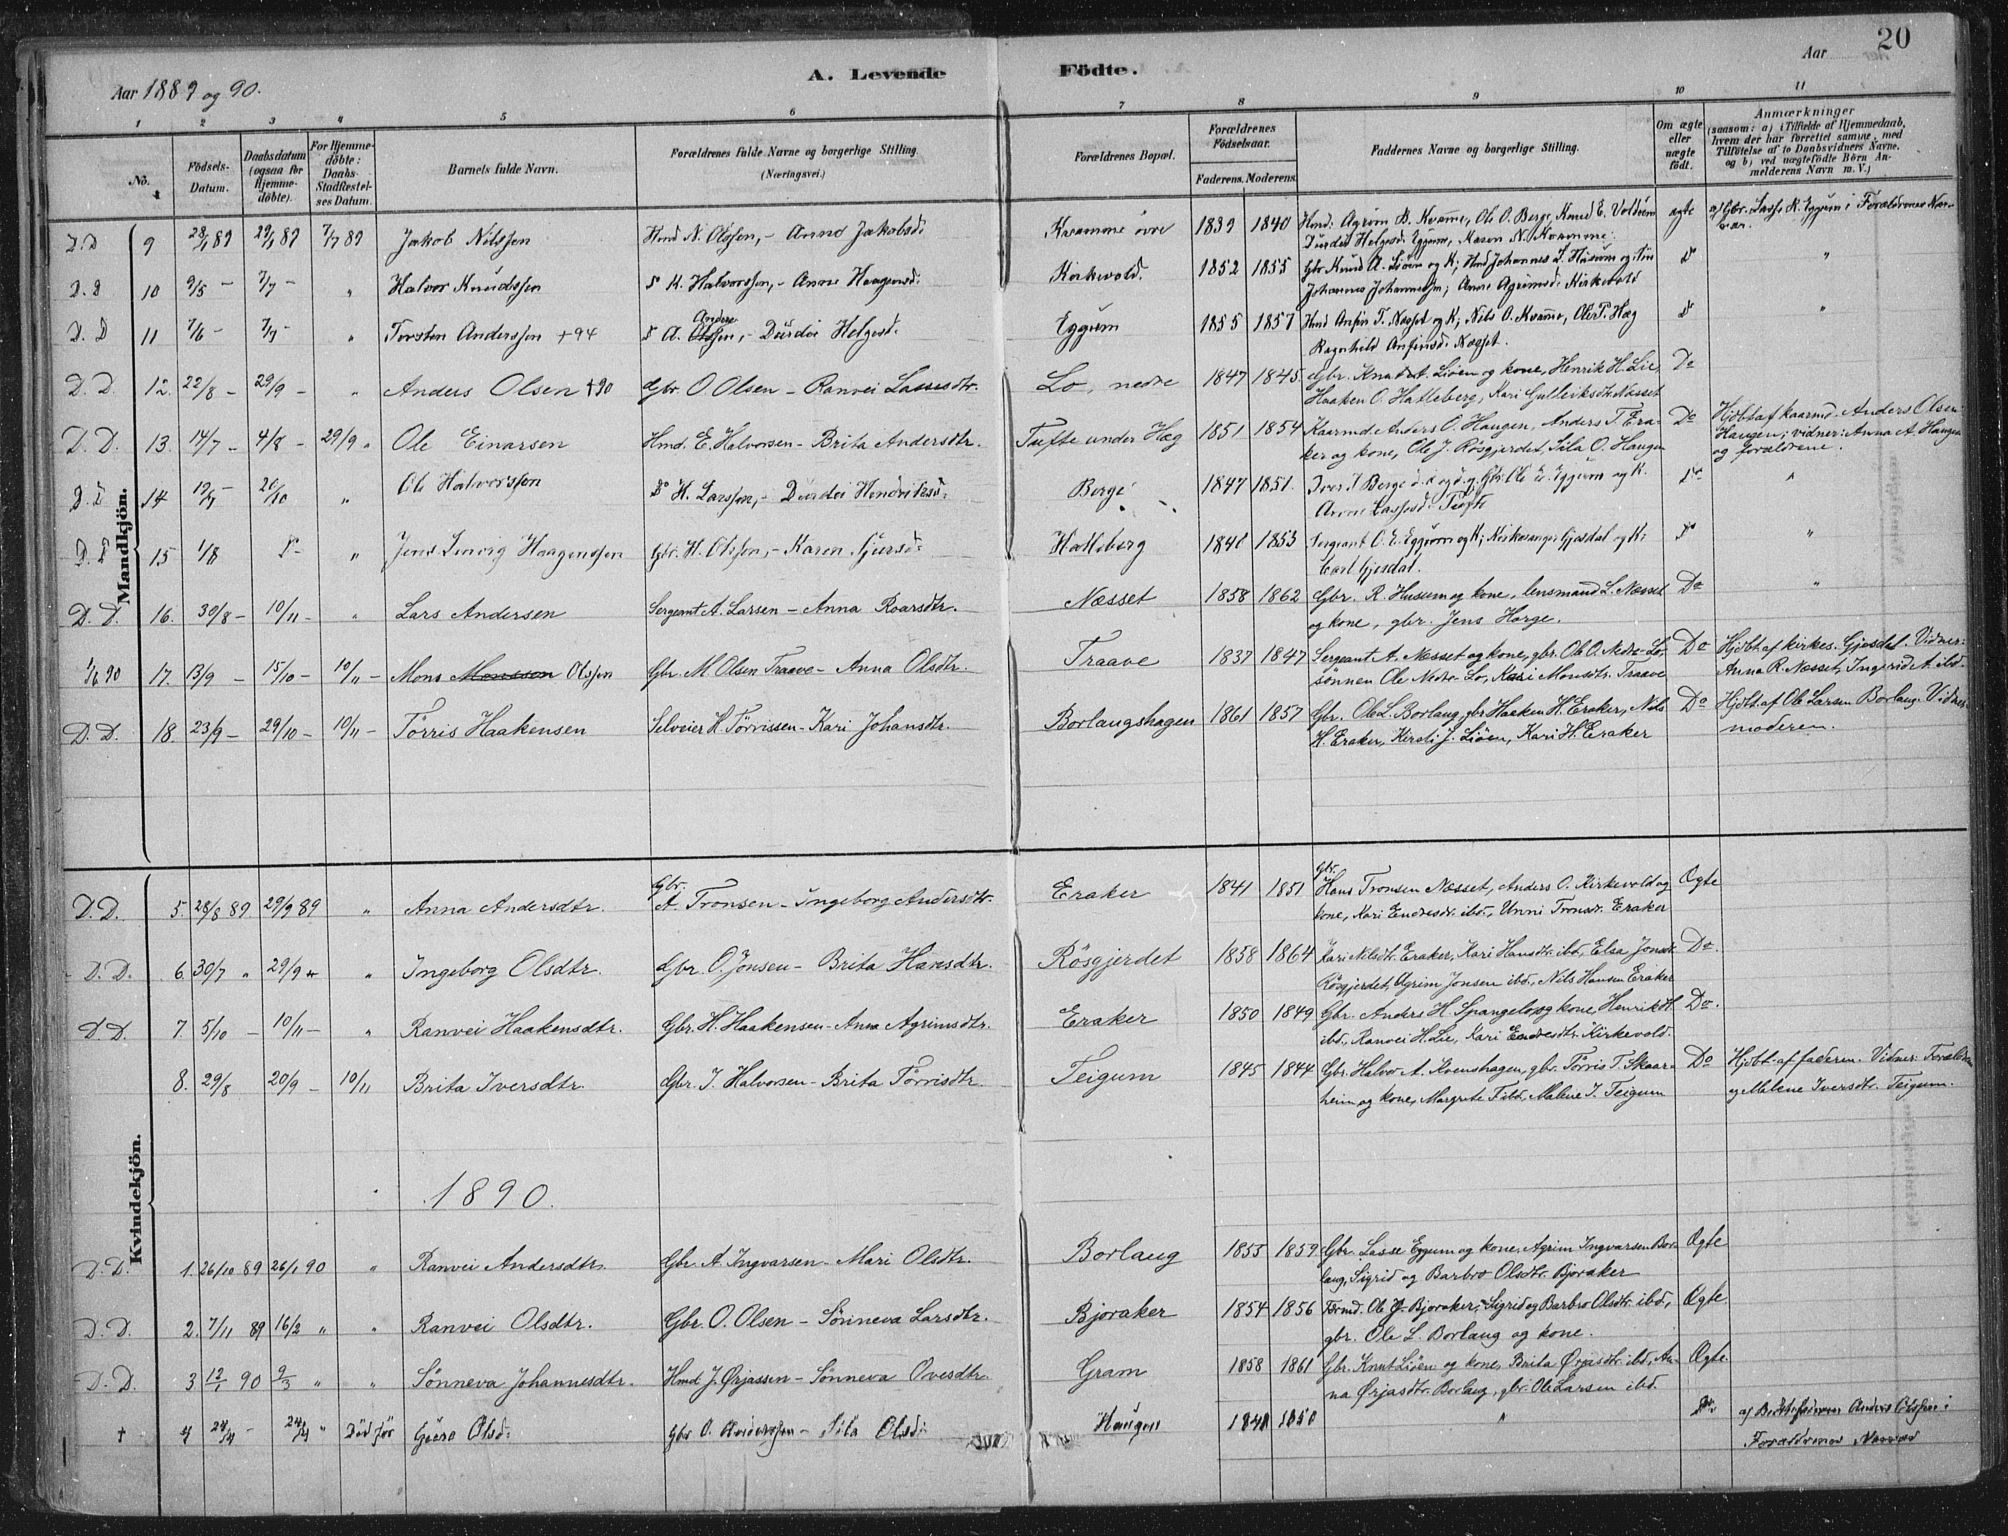 20
Aar 1889 og 90.
A. Levende Födte.
Aar
1 2 3 4 5 6 7 8 9 10 11
No.
Födsels-Datum.
Daabsdatum (ogsaa for Hjemmedöbte).
For Hjemmedöbte: Daabs-Stadfæstelses Datum.
Barnets fulde Navn.
Forældrenes fulde Navne og borgerlige Stilling. (Næringsvei.)
Forældrenes Bopæl.
Forældrenes Födselsaar.
Faderens. Moderens.
Faddernes Navne og borgerlige Stilling.
Om ægte eller uægte født.
Anmærkninger
(saasom: a) i Tilfælde af Hjemmedaab, hvem der har forrettet samme, med Tilføielse af to Daabsvidners Navne. og b) ved uægtefödte Börn Anmelderens Navn m. V.)
Mandkjön.
D.D 9 28/1 89 29/1 89 7/7 89 Jakob Nilssen Hmd N. Olssen, - Anna Jakobsd: Kvamme övre 1839 1840 Hmd: Agrim B. Kvamme, Ole O. Berge, Knud E. Voldum ægte a) Gbr. Lasse R. Eggum i Forældrenes Nær-
Durdei Helgesd: Eggum, Maren N. Kvamme. vær.
D.D 10 9/5 - 7/7 - " Halvor Knudssen D K. Halvorssen, - Anne Haagensd: Kirkevold. 1852 1855 Gbr Knud A. Liöen og K; Hmd Johannes L. Husum og D "
Johannes Johannessen; Anne Agrimsd: Kirkevold
D.D 11 7/6 - 7/7 - " Torsten Anderssen +94 D A. Olssen, - Durdei Helgesd: Eggum 1855 1857 Hmd Anfin T. Næsset og K; Nils O. Kvamme, Ole P. Hæg D "
Ragnhild Anfinsd: Næsset.
D.D. 12. 22/8 - 29/9 - " Anders Olsen +90 Gbr. O. Olsen - Ranvei Lassesdtr. Lo, nedre 1847 1845. Gbr. Knud A. Liöen og kone, Henrik H. Lie, Do
Haaken O. Hatleberg, Kari Gulleiksdtr. Næsset
D.D. 13. 14/7 - 4/8 - 29/9 " Ole Einarsen Hmd. E. Halvorsen - Brita Andersdtr. Tufte under Hæg 1851 1854 Kaarmd. Anders O. Haugen, Anders T. Era- Do Hjdbt af kaarmd. Anders Olsen
ker og kone, Ole J. Rösgjerdet, Sila O. Haugen Haugen; vidner: Anna A. Haugen
og forældrene.
D.D 14 19/7 20/10 " Ole Halvorssen D H. Larssen, - Durdei Hendriksd: Berge 1847 1851. Iver I Berge Gbr. Ole E. Eggum og K. Do "
Anne Lassesd: Tufte
D.D 15 1/8 D- " Jens Haagenssen Gbr. H. Olssen, - Karen Sjursd: Hatleberg 1848 1853 Sergeant O. E. Eggum og K; Kirkesanger Gjesdal og K; D "
Carl Gjesdal.
D.D. 16. 30/8 - 10/11 - " Lars Andersen Sergeant A. Larsen - Anna Roarsdtr. Næsset 1858 1862 Gbr. R. Husum og kone, lensmand L. Næsset Do "
og kone, gbr. Jens Horge.
1/6 90 17. 13/9 - 15/10 - 10/11 - Mons Monssen Olssen Gbr. M. Olsen Traave - Anna Olsdtr. Traave 1837 1847 Sergeant A. Næsset og kone, gbr. Ole O. Nedre-Lo, Do Hjdbt af kirkes. Gjesdal. Vidner:
sönnen Ole Nedre-Lo, Kari Monsdtr. Traave Anna R. Næsset, Ingerid A. ibd.
D.D. 18. 23/9 - 29/10 - 10/11 - Törris Haakensen Selveier H. Törrissen - Kari Johansdtr. Borlaugshagen 1861 1857 Gbr. Ole L. Borlaug, gbr Haaken H. Eraker, Nils Do Hjdbt. af Ole Larsen Borlaug. Vidner
H. Eraker, Kirsti J. Liöen, Kari H. Eraker moderen.
Kvindekjön.
D.D. 5. 28/8 89 29/9 89 " Anna Andersdtr. Gbr. A. Tronsen - Ingeborg Andersdtr. Eraker 1841 1851 Gbr. Hans Tronsen Næsset, Anders O. Kirkevold og Ægte
kone, Kari Endresdtr. ibd., Unni Tronsdr. Eraker
D.D. 6. 30/7 " 29/9 " " Ingeborg Olsdtr. Gbr. O. Jonsen - Brita Hansdtr. Rösgjerdet 1858 1864 Kari Nilsdtr. Eraker, Kari Hansdtr. ibd, Elsa Jonsdtr Do.
Rösgjerdet, Agrim Jonsen ibd., Nils Hansen Eraker
D.D. 7. 5/10 - 10/11 - " Ranvei Haakensdtr. Gbr. H. Haakensen - Anna Agrimsdtr. Eraker 1850 1849 Gbr. Anders H. Spangelo og kone, Henrik H. Do.
ibd, Ranvei H. Lie, Kari Endresdtr. Kirkevold.
8. 29/8 20/9 - 10/11 Brita Iversdtr. Gbr. I. Halvorsen - Brita Törrisdtr Teigum 1845 1844 Gbr. Halvor A. Kvenshagen, gbr. Törris T. Skaar- Do Hjdbt. af faderen. Vidner: Forældrene
heim og kone, Margrete T. ibd, Malene I. Teigum og Malene Iversdtr. Teigum.
1890.
D.D. 1. 26/10 89 26/1 90 " Ranvei Andersdtr. Gbr. A Ingvarsen - Mari Olsdtr. Borlaug 1855 1859 Gbr. Lasse Eggum og kone, Agrim Ingvarsen Bor- Ægte
laug, Sigrid og Barbro Olsdtr. Bjoraker
D.D. 2. 7/11 89 16/2 " " Ranvei Olsdtr. Gbr. O. Olsen - Sönneva Larsdtr. Bjoraker 1854 1856 Ole J. Bjoraker, Sigrid og Barbro Olsdtr. ibd, Ægte
gbr. Ole L. Borlaug og kone.
D.D. 3 12/1 90 9/3 " " Sönneva Johannesdtr. Hmd J. Ørjassen - Sönneva Ovesdtr. Gram 1858 1861 Gbr. Knut Liöen og kone, Brita Ørjasdtr. ibd, An- Ægte
na Ørjasdtr. Borlaug, gbr. Ole Larsen ibd.
+ 4 24/4 - 24/4 " Död för Gbr O. Anderssen - Sila Olsd: Haugen 1848 1850 " Do a) Bedstefaderen Anders Olssen i
Forældrenes Nærvær